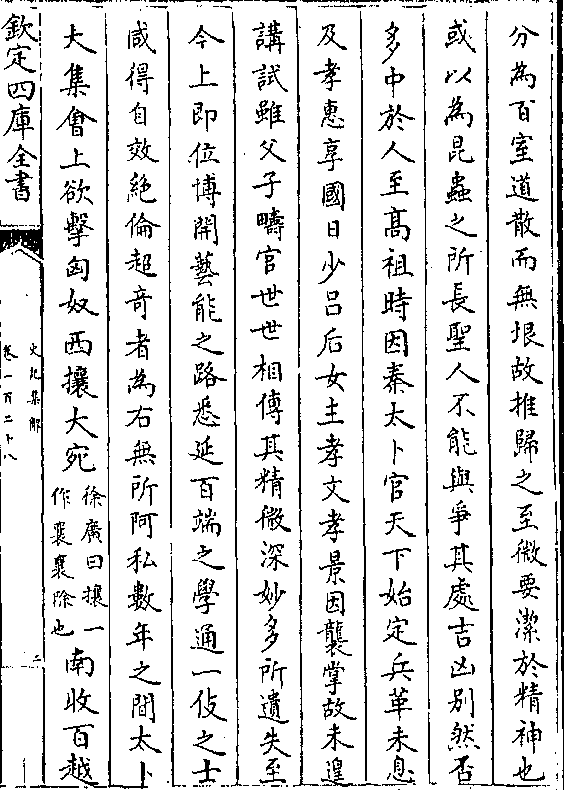 分為百室道散而無垠故推歸之至微要潔於精神也
或以為昆蟲之所長聖人不能與爭其處吉凶别然否
多中於人至高祖時因秦太卜官天下始定兵革未息
及孝惠享國日少吕后女主孝文孝景因襲掌故未遑
講試雖父子疇官世世相傳其精微深妙多所遺失至
今上即位博開藝能之路悉延百端之學通一伎之士
咸得自效絶倫超竒者為右無所阿私數年之間太卜
大集會上欲擊匈奴西攘大宛徐廣曰攘一作襄襄除也南收百越
欽定四庫全書
史記集解
卷一百二十八
二